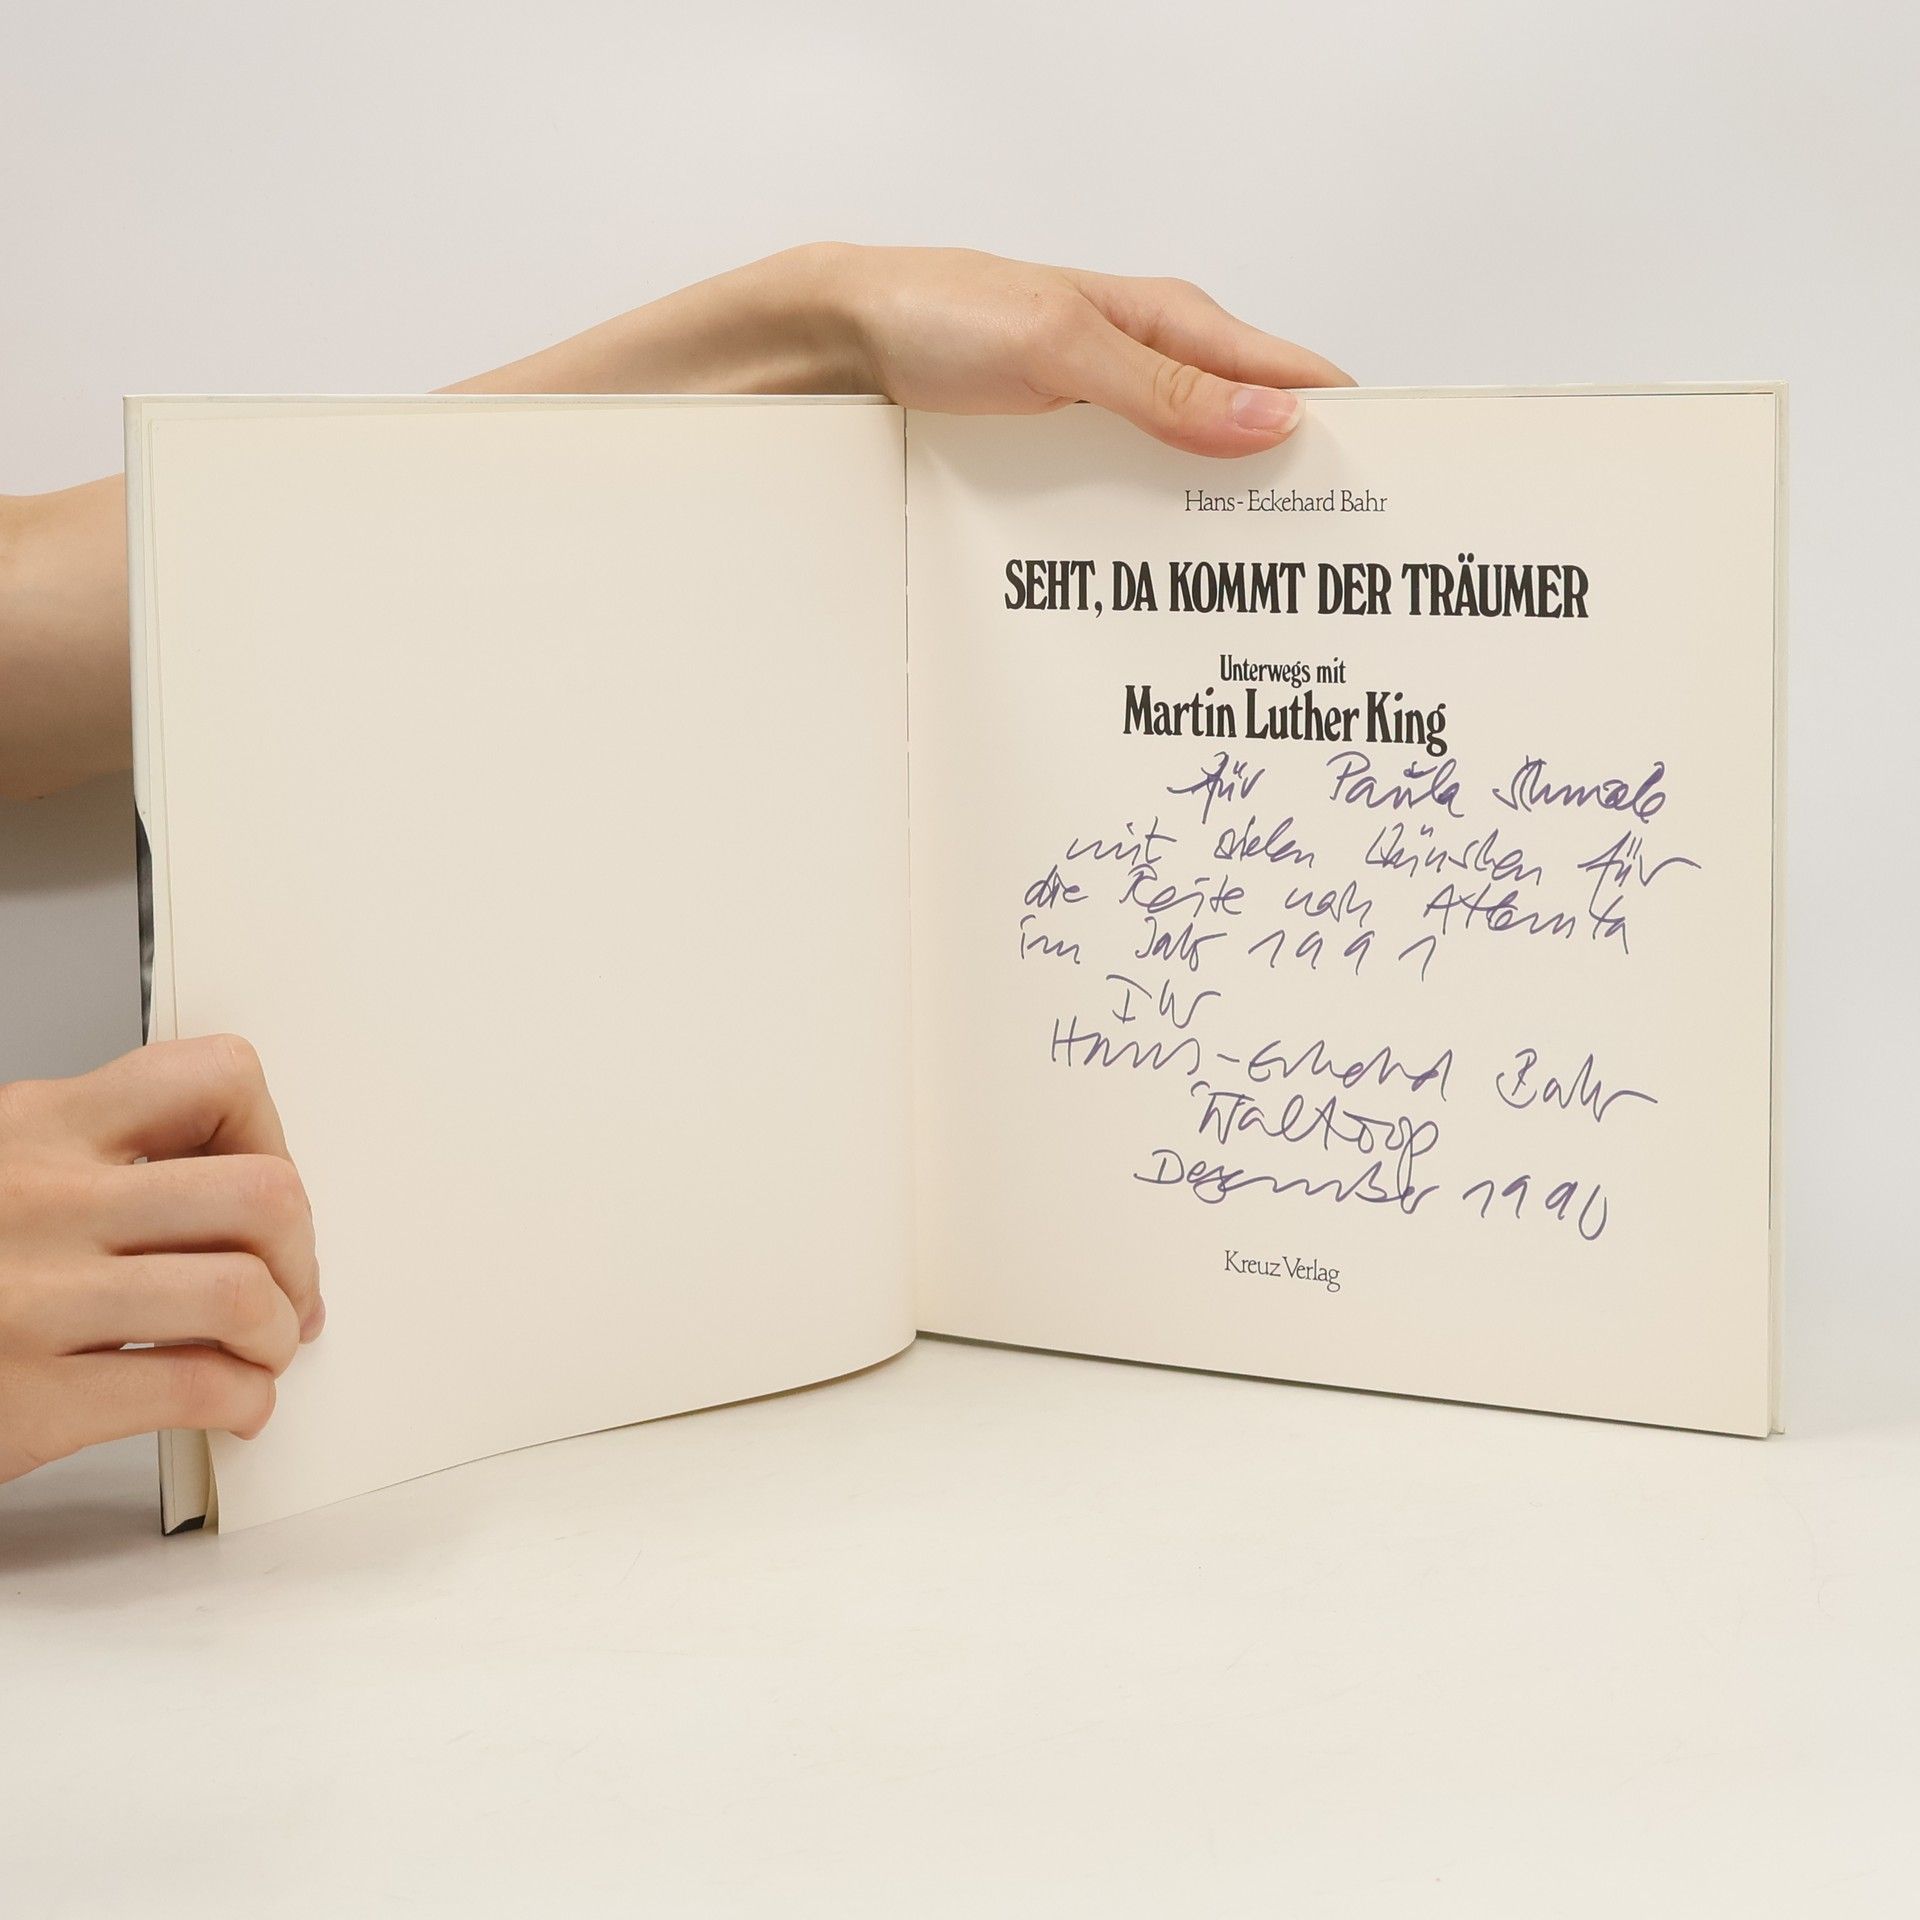 Hans-Eckehard Bahr
SEHT, DA KOMMT DER TRÄUMER
Unterwegs mit
Martin Luther King
für Paula Schmale
mit vielen Wünschen für
die Reise nach Atlanta
im Jahr 1991
Ihr
Hans-Eckehard Bahr
Waltrop
Dezember 1990
Kreuz Verlag